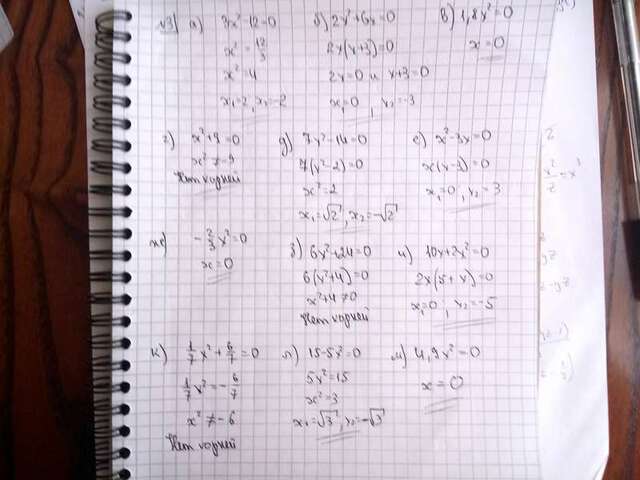 №3 а) 3x²-12=0
x² = 12/3
x² = 4
x₁=2, x₂=-2
б) 2x²+6x=0
2x(x+3)=0
2x=0 и x+3=0
x₁=0, x₂=-3
в) 1,8x²=0
x=0
г) x²+9=0
x²≠-9
Нет корней
д) 7x²-14=0
7(x²-2)=0
x²=2
x₁=√2, x₂=-√2
е) x²-3x=0
x(x-3)=0
x₁=0, x₂=3
ж) -2/3x²=0
x=0
з) 6x²+24=0
6(x²+4)=0
x²+4≠0
Нет корней
и) 10x+2x²=0
2x(5+x)=0
x₁=0, x₂=-5
к) 1/7x²+6/7=0
1/7x²=-6/7
x²≠-6
Нет корней
л) 15-5x²=0
5x²=15
x²=3
x₁=√3, x₂=-√3
м) 4,9x²=0
x=0